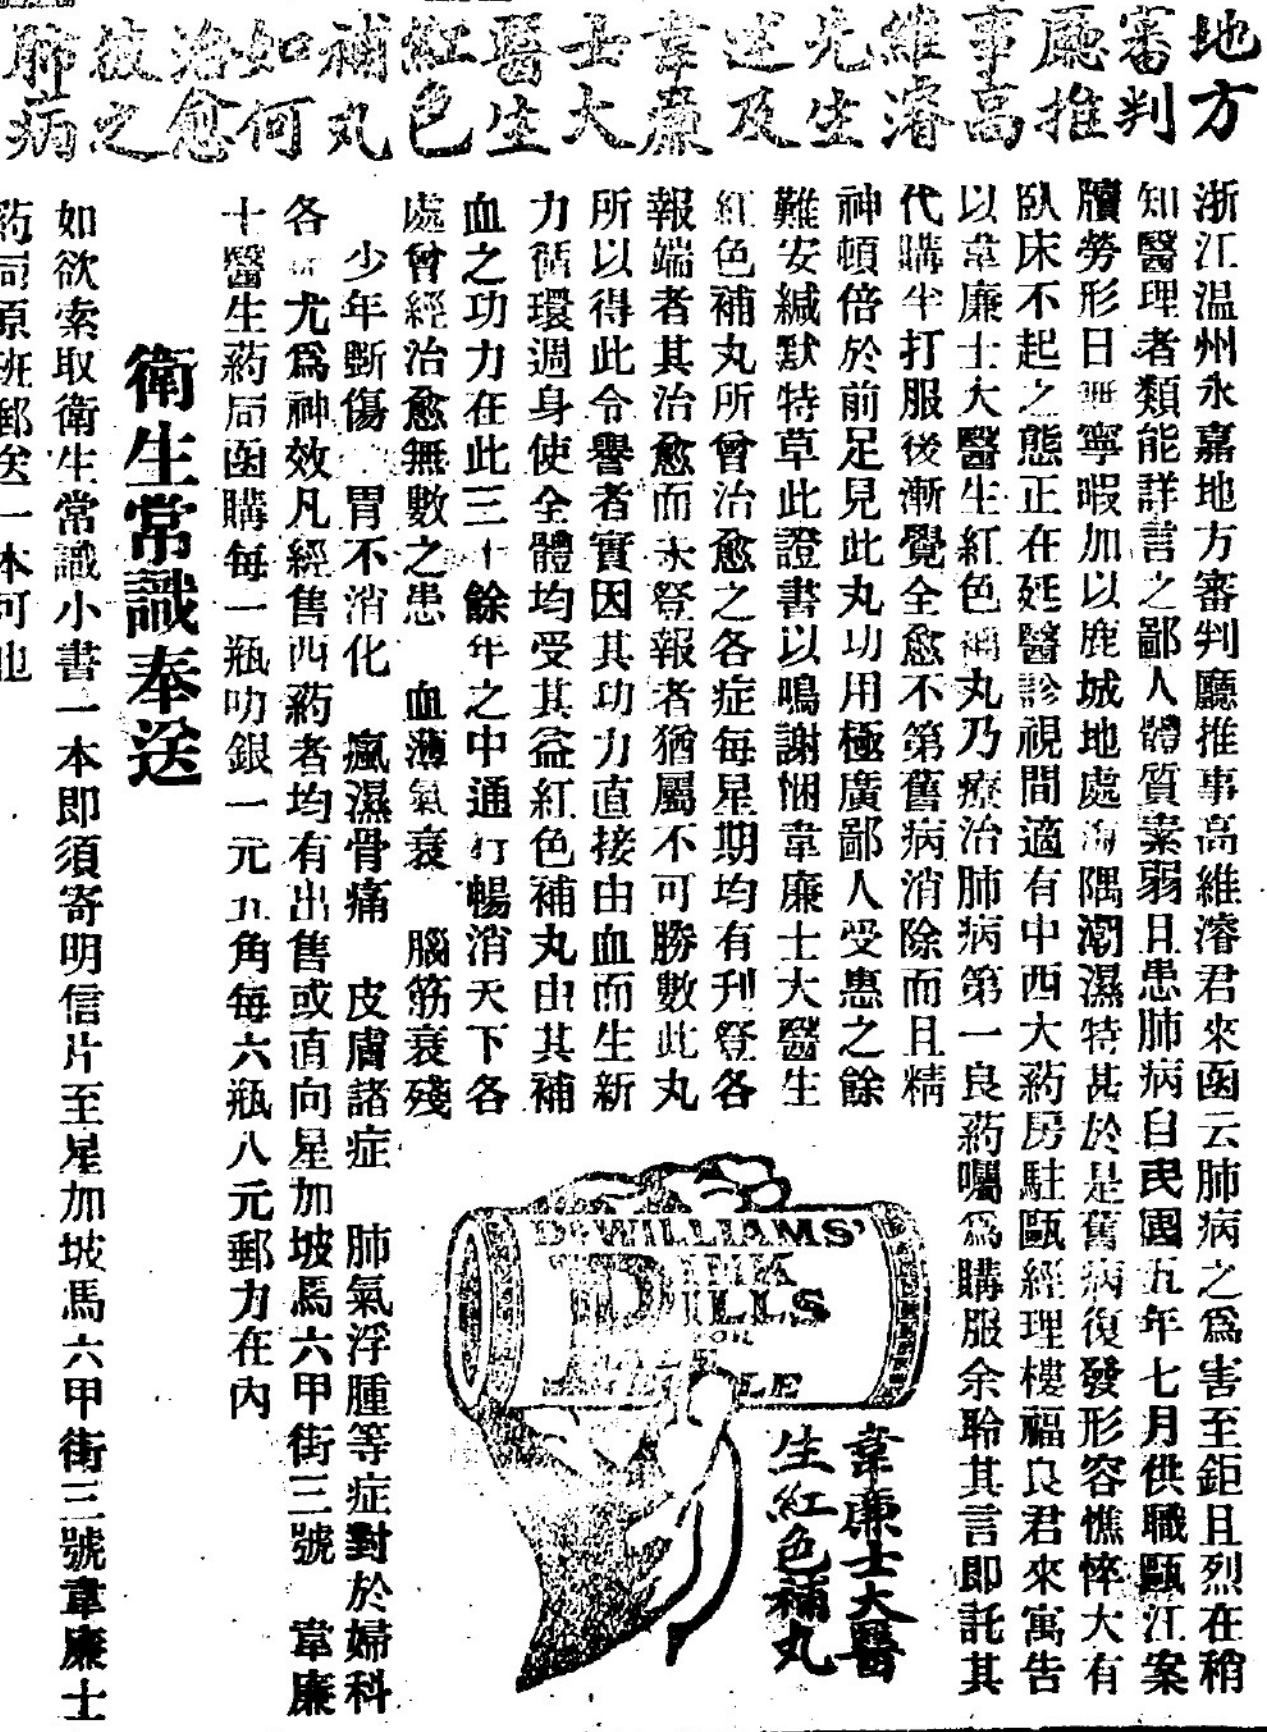 地方
審判
廳推
事高
維濬
先生
述及
韋廉
士大
醫生
紅色
補丸
如何
治愈
彼之
肺病
浙江温州永嘉地方審判廳推事高維濬君來函云肺病之爲害至鉅且烈在稍
知醫理者類能詳言之鄙人體質素弱且患肺病自民國五年七月供職甌江案
牘勞形日無寧暇加以鹿城地處海隅潮濕特甚於是舊病復發形容憔悴大有
臥床不起之態正在延醫診視間適有中西大葯房駐甌經理樓福良君來寓告
以韋廉士大醫生紅色補丸乃療治肺病第一良葯囑爲購服余聆其言即託其
代購半打服後漸覺全愈不第舊病消除而且精
神頓倍於前足見此丸功用極廣鄙人受惠之餘
難安緘默特草此證書以鳴謝悃韋廉士大醫生
紅色補丸所曾治愈之各症每星期均有刋登各
報端者其治愈而未登報者猶屬不可勝數此丸
所以得此令譽者實因其功力直接由血而生新
力循環週身使全體均受其益紅色補丸由其補
血之功力在此三十餘年之中通行暢消天下各
處曾經治愈無數之患 血薄氣衰 腦筋衰殘
少年斲傷 胃不消化 瘋濕骨痛 皮膚諸症 肺氣浮腫等症對於婦科
各 尤爲神效凡經售西葯者均有出售或直向星加坡馬六甲街三號 韋廉
士醫生葯局函購每一瓶叻銀一元五角每六瓶八元郵力在內
衛生常識奉送
如欲索取衛生常識小書一本即須寄明信片至星加坡馬六甲街三號韋廉士
葯局原班郵送一本可也
DR WILLIAMS'
PINK
PILLS
FOR
PALE
韋廉士大醫
生紅色補丸